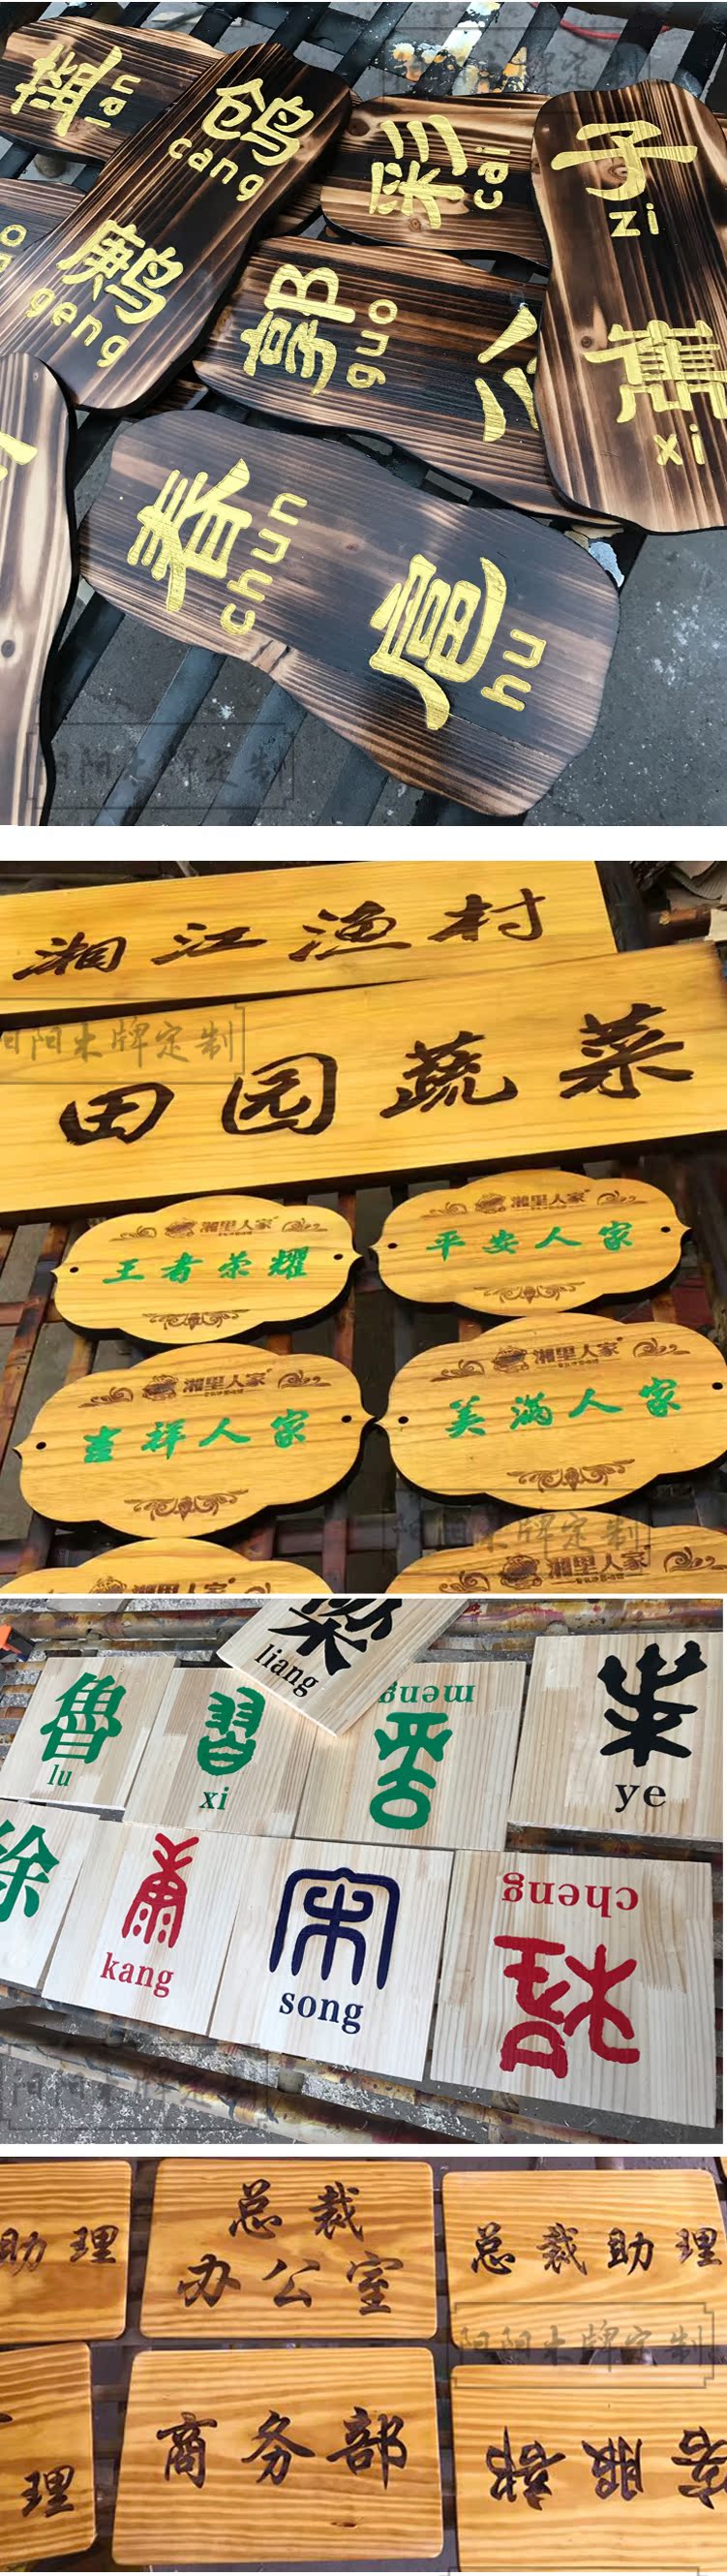 lan
鸧
cang
鹒
geng
彩
cai
子
zi
巂
xi
郭
guo
公
春
chun
扈
hu
湘江渔村
阳阳木牌定制
田园蔬菜
湘里人家
王者荣耀
湘里人家
平安人家
湘里人家
吉祥人家
湘里人家
美满人家
湘里人家
湘里人家
梁
liang
魯
lu
習
xi
meng
ye
徐
kang
宋
song
cheng
阳阳木牌定制
助理
总裁
办公室
总裁助理
阳阳木牌定制
理
商务部
客服部